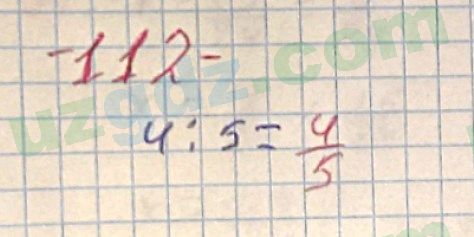 -112-
uzgdz.com
4 : 5 = 4/5